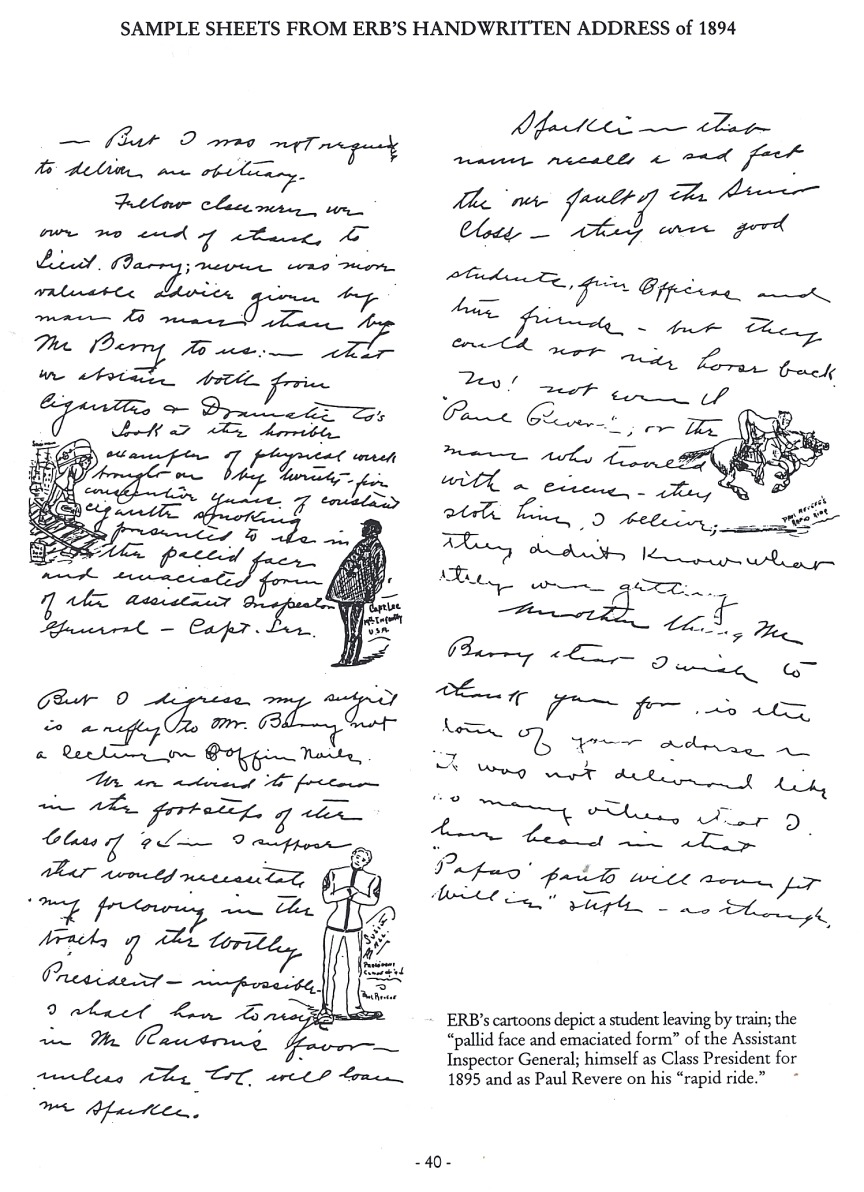 SAMPLE SHEETS FROM ERB'S HANDWRITTEN ADDRESS of 1894
— But I was not required
to deliver an obituary.
Fellow classmen, we
owe no end of thanks to
Lieut. Barry; never was more
valuable advice given by
man to man than by
Mr Barry to us: — that
we abstain both from
Cigarettes & Dramatic Co's
Look at the horrible
examples of physical wreck
brought on by twenty-five
consecutive years of constant
cigarette smoking
presented to us in
the pallid face
and emaciated form
of the Assistant Inspector
General — Capt. Lee.
Capt Lee
Infantry
U.S.A.
But I digress my subject
is a reply to Mr. Barry not
a lecture on Coffin Nails.
We are advised to follow
in the footsteps of the
Class of '94 — I suppose
that would necessitate
my following in the
tracks of the Worthy
President — impossible.
I shall have to resign
in Mr Ransom's favor —
unless the Col. will loan
me Sparkle.
President
Paul Revere
Sparkle — that
name recalls a sad fact
the one fault of the Senior
Class — they were good
students, fine Officers and
true friends — but they
could not ride horse back.
No! not even
"Paul Revere", or the
man who traveled
with a circus — they
stole him, I believe;
they didn't know what
they were getting
Paul Revere's
Rapid Ride
Another thing Mr
Barry that I wish to
thank you for, is the
tone of your address —
It was not delivered like
so many others that I
have heard in that
"Papas' pants will soon fit
Willie" style — as though,
ERB's cartoons depict a student leaving by train; the
"pallid face and emaciated form" of the Assistant
Inspector General; himself as Class President for
1895 and as Paul Revere on his "rapid ride."
- 40 -